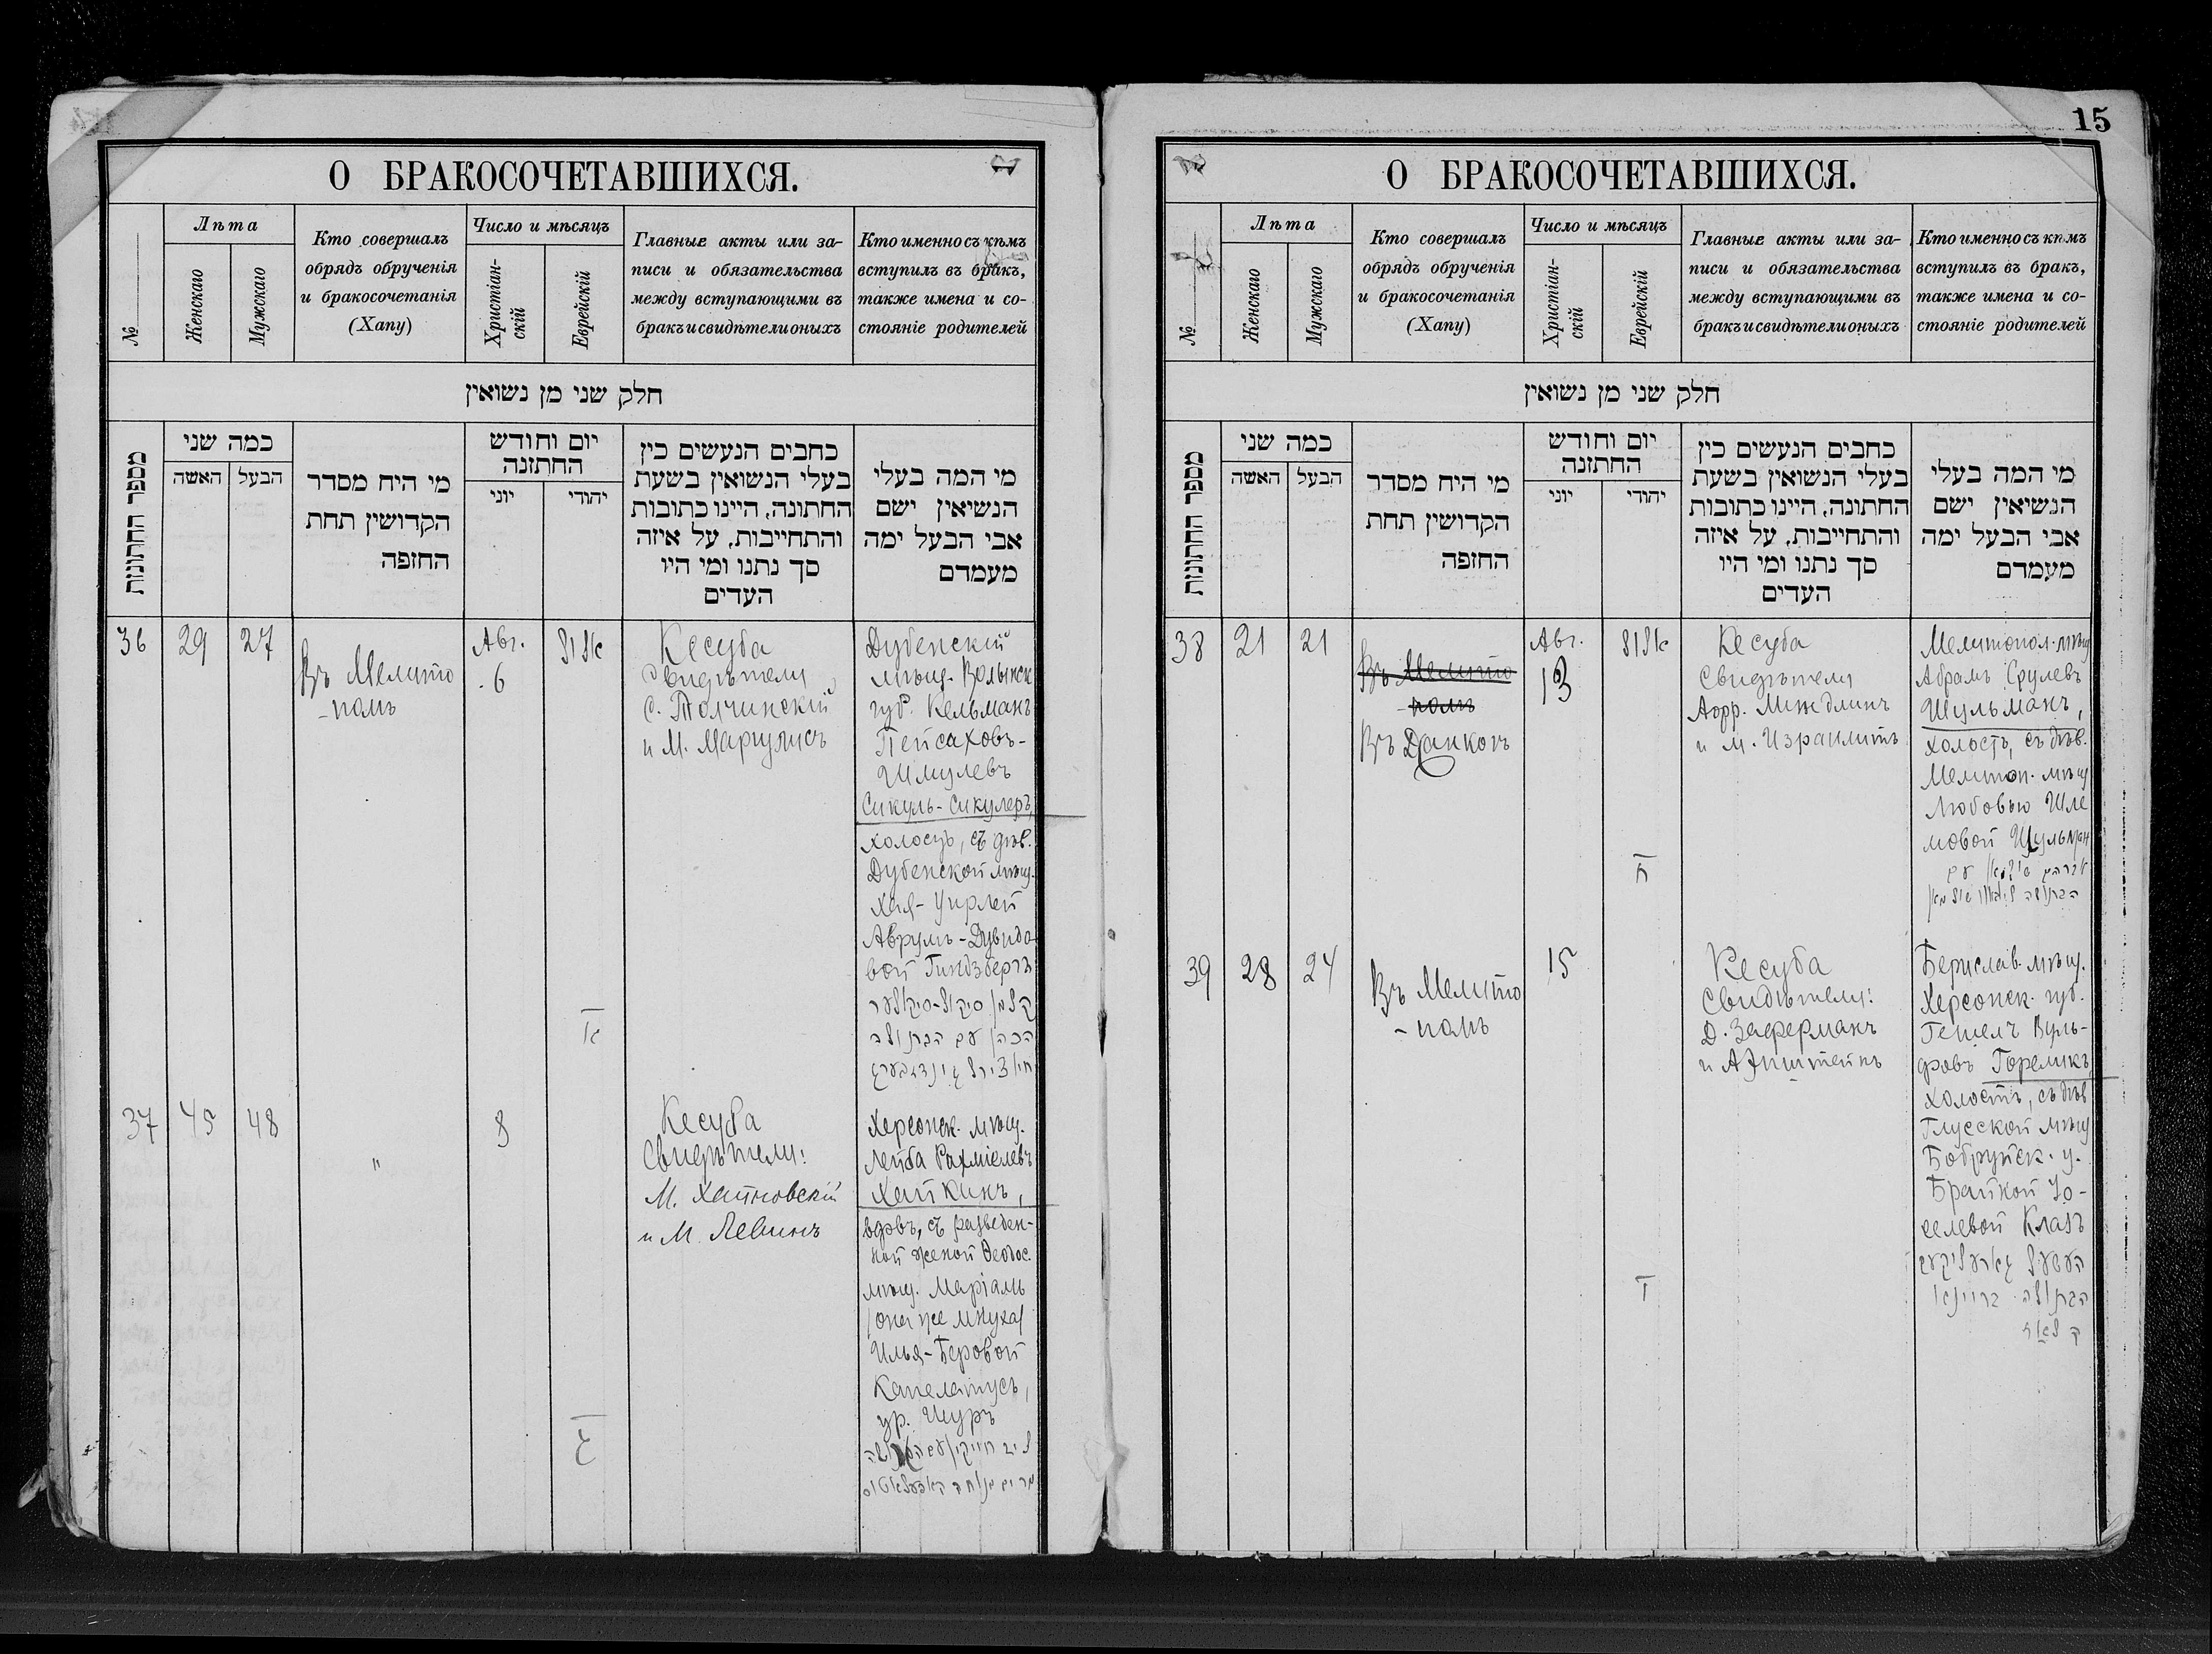 15
О БРАКОСОЧЕТАВШИХСЯ.
№
Лѣта
Женскаго
Мужскаго
Кто совершалъ
обрядъ обрученія
и бракосочетанія
(Хапу)
Число и мѣсяцъ
Христіан-
скій
Еврейскій
Главные акты или за-
писи и обязательства
между вступающими въ
бракъ и свидѣтели оныхъ
Кто именно съ кѣмъ
вступилъ въ бракъ,
также имена и со-
стояніе родителей
חלק שני מן נשואין
מספר החתונות
כמה שני
האשה
הבעל
מי היח מסדר
הקדושין תחת
החופה
יום וחודש
החתונה
יוני
יהודי
כחבים הנעשים כין
בעלי הנשואין בשעת
החתונה, היינו כתובות
והתחייבות, על איזה
סך נתנו ומי היו
העדים
מי המה בעלי
הנשיאין ישם
אבי הבעל ימה
מעמדם
36
29
27
Въ Мелито
-полѣ
Авг.
6
אלול
כא
Кесуба
Свидѣтели
С. Толчинскій
и М. Маргулисъ
Дубенскій
мѣщ. Волынск
губ. Кельманъ
Пейсаховъ-
Шмулевъ
Сикуль-Сикулеръ,
холостъ, съ дѣв.
Дубенской мѣщ.
Хая-Цирлей
Аврумъ-Дувидо-
вой Гиндзбергъ
קלמן סיקול-סיקולער
הכהן עם הבתולה
חי' צירל גינדזבערג
37
45
48
"
8
Кесуба
Свидѣтели:
М. Хайтовскій
и М. Левинъ
Херсонск. мѣщ.
Лейба Рахміелевъ
Хайкинъ,
вдовъ, съ разведен-
ной женой Ѳеодос.
мѣщ. Маріамъ
(она же Мнуха)
Илья-Беровой
Капелатусъ,
ур. Шуръ
О БРАКОСОЧЕТАВШИХСЯ.
№
Лѣта
Женскаго
Мужскаго
Кто совершалъ
обрядъ обрученія
и бракосочетанія
(Хапу)
Число и мѣсяцъ
Христіан-
скій
Еврейскій
Главные акты или за-
писи и обязательства
между вступающими въ
бракъ и свидѣтели оныхъ
Кто именно съ кѣмъ
вступилъ въ бракъ,
также имена и со-
стояніе родителей
חלק שני מן נשואין
מספר החתונות
כמה שני
האשה
הבעל
מי היח מסדר
הקדושין תחת
החופה
יום וחודש
החתונה
יוני
יהודי
כחבים הנעשים כין
בעלי הנשואין בשעת
החתונה, היינו כתובות
והתחייבות, על איזה
סך נתנו ומי היו
העדים
מי המה בעלי
הנשיאין ישם
אבי הבעל ימה
מעמדם
38
21
21
Въ Мелито
-полѣ
Въ Джанкоѣ
Авг.
13
אלול
ח
Кесуба
Свидѣтели
и М. Израилитъ
Мелитопол. мѣщ
Абрамъ Срулевъ
Шульманъ,
холостъ, съ дѣв.
Мелитоп. мѣщ
Любовью Шле
мовой Шульман
אברהם שולמאן עם
39
28
24
Въ Мелито
-полѣ
15
י
Кесуба
Свидѣтели:
Д. Заферманъ
и А Эпштейнъ
Бериславъ. мѣщ.
Херсонск. губ.
Гешель Вуль-
фовъ Гореликъ,
холостъ, съ дѣв
Глусской мѣщ
Бобруйск. у.
Брайной Іо-
селевой Клазъ
העשעל גארעליק עם
הבתולה בריינא
קלאז